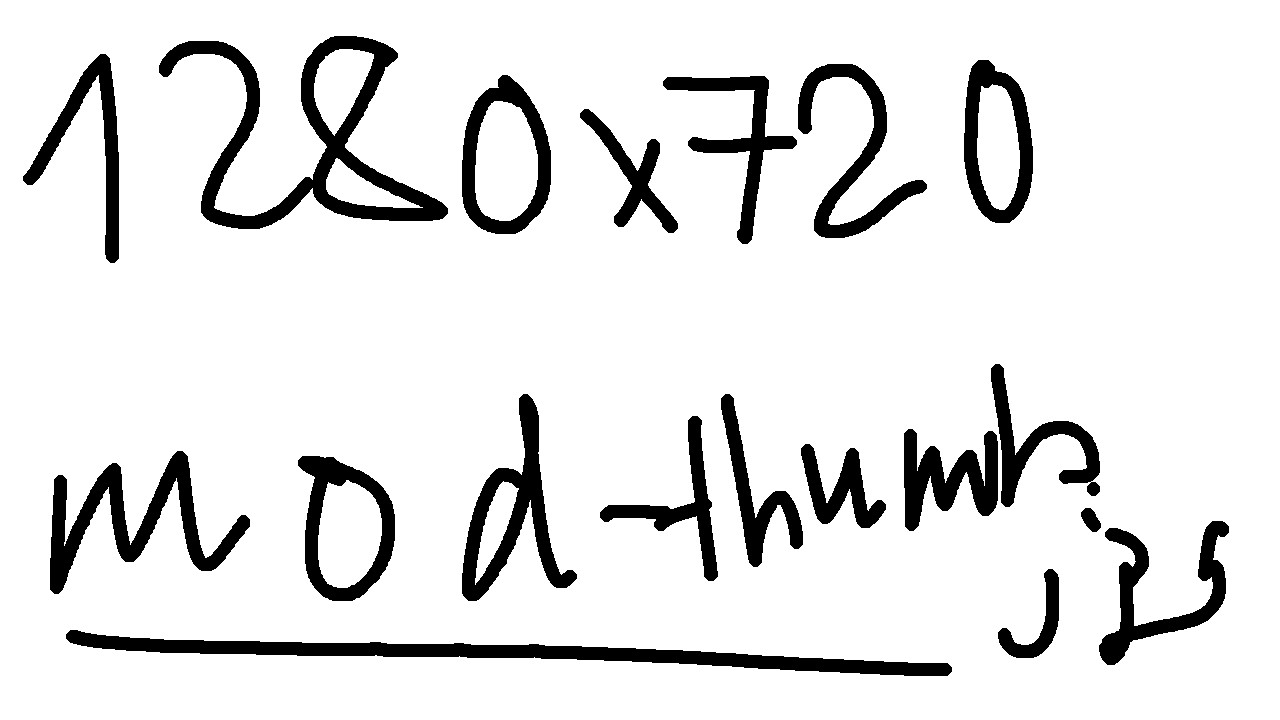 1280x720
mod-thumb.jpg